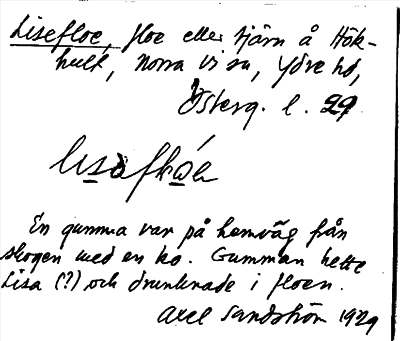 Lisefloe, floe eller tjärn å Hök-
hult, Norra Vi sn, Ydre hd,
Österg. l. 29
En gumma var på hemväg från
skogen med en ko. Gumman hette
Lisa (?) och drunknade i floen.
Axel Sandström 1929